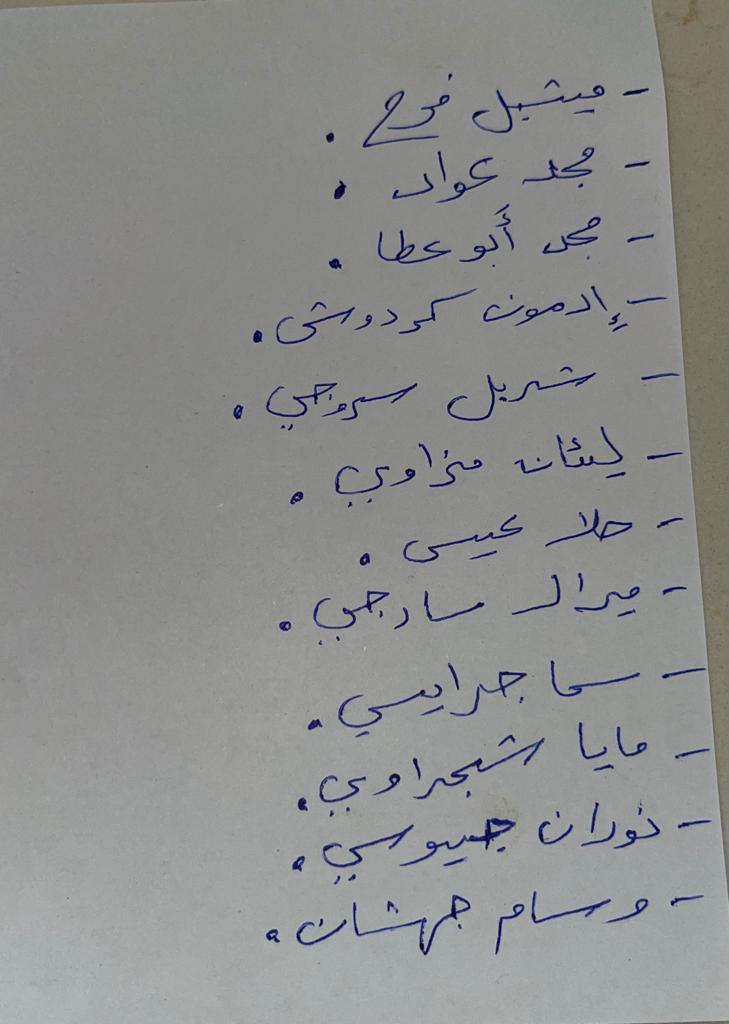 - ميشيل فرح .
- مجد عواد .
- مجد أبو عطا .
- إدمون كردوش .
- شربل سروجي .
- ليئان مزاوي .
- حلا عيسى .
- ميرال سارجي .
- سما جرايسي .
- مايا شجراوي .
- نوران جيوسي .
- وسام جهشان .